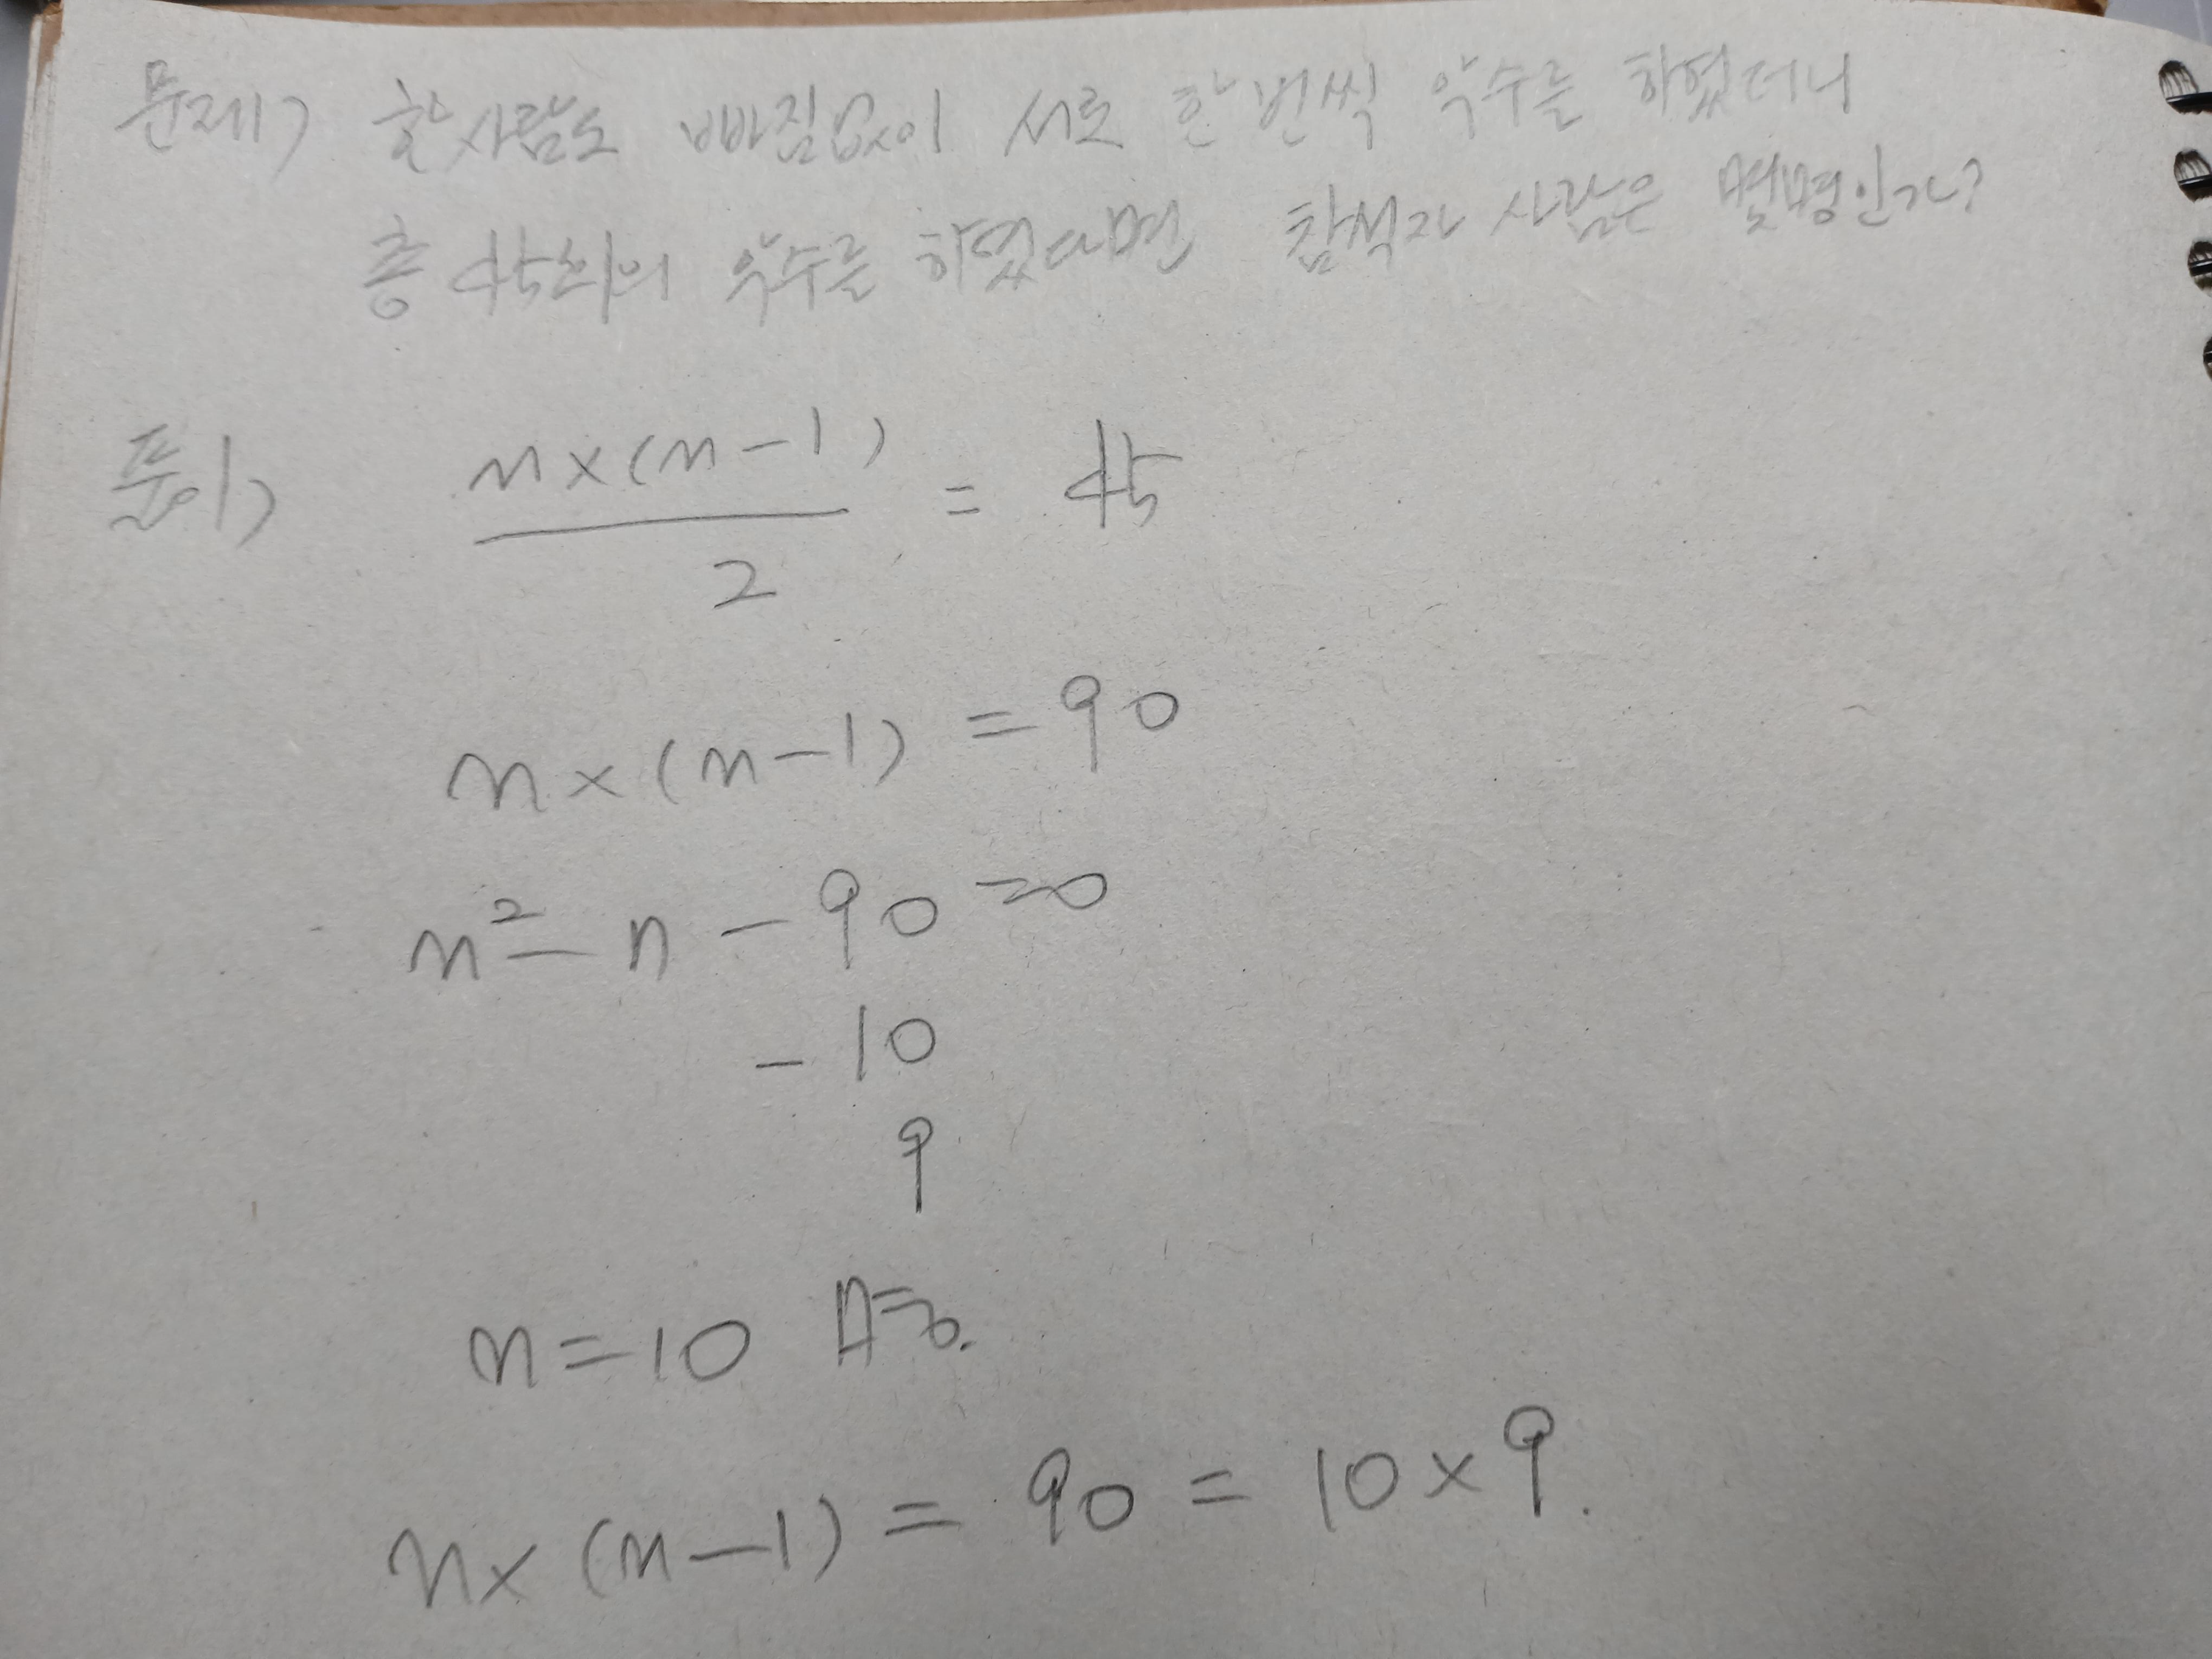 문제) 한사람도 빠짐없이 서로 한번씩 악수를 하였더니
총 45회의 악수를 하였다면 참석자 사람은 몇명인가?
풀이) n×(n-1)/2 = 45
n×(n-1) = 90
n²-n-90=0
-10
9
n=10
n×(n-1) = 90 = 10×9.